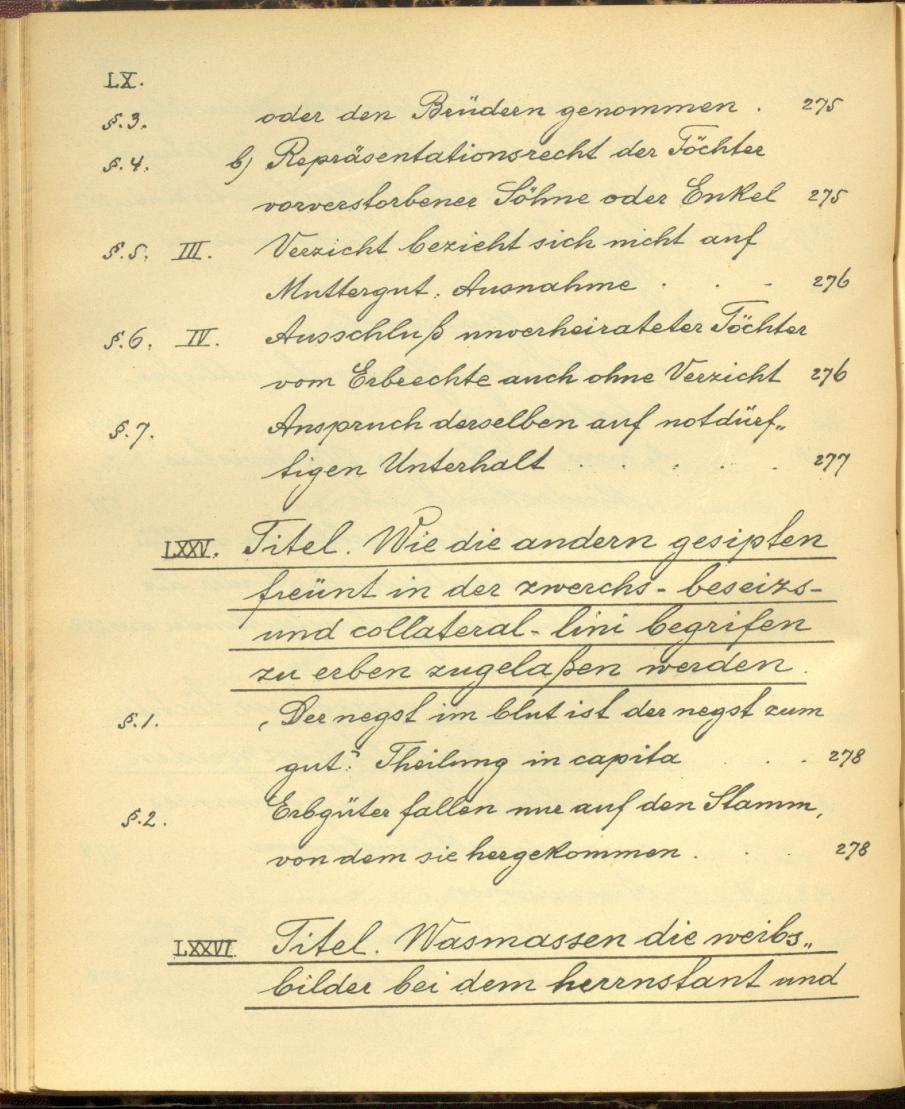 LX.
§.3. oder den Brüdern genommen . 275
§.4. b) Repräsentationsrecht der Töchter
vorverstorbener Söhne oder Enkel 275
§.5. III. Verzicht bezieht sich nicht auf
Muttergut. Ausnahme . . . 276
§.6. IV. Ausschluß unverheirateter Töchter
vom Erbrechte auch ohne Verzicht 276
§.7. Anspruch derselben auf notdürf„
tigen Unterhalt . . . . . 277
LXXV. Titel. Wie die andern gesipten
freünt in der zwerchs- beseizs-
und collateral-lini begrifen
zu erben zugelaßen werden.
§.1. „Der negst im blut ist der negst zum
gut." Theilung in capita . . . 278
§.2. Erbgüter fallen nur auf den Stamm,
von dem sie hergekommen . . . 278
LXXVI Titel. Wasmassen die weibs„
bilder bei dem herrnstant und